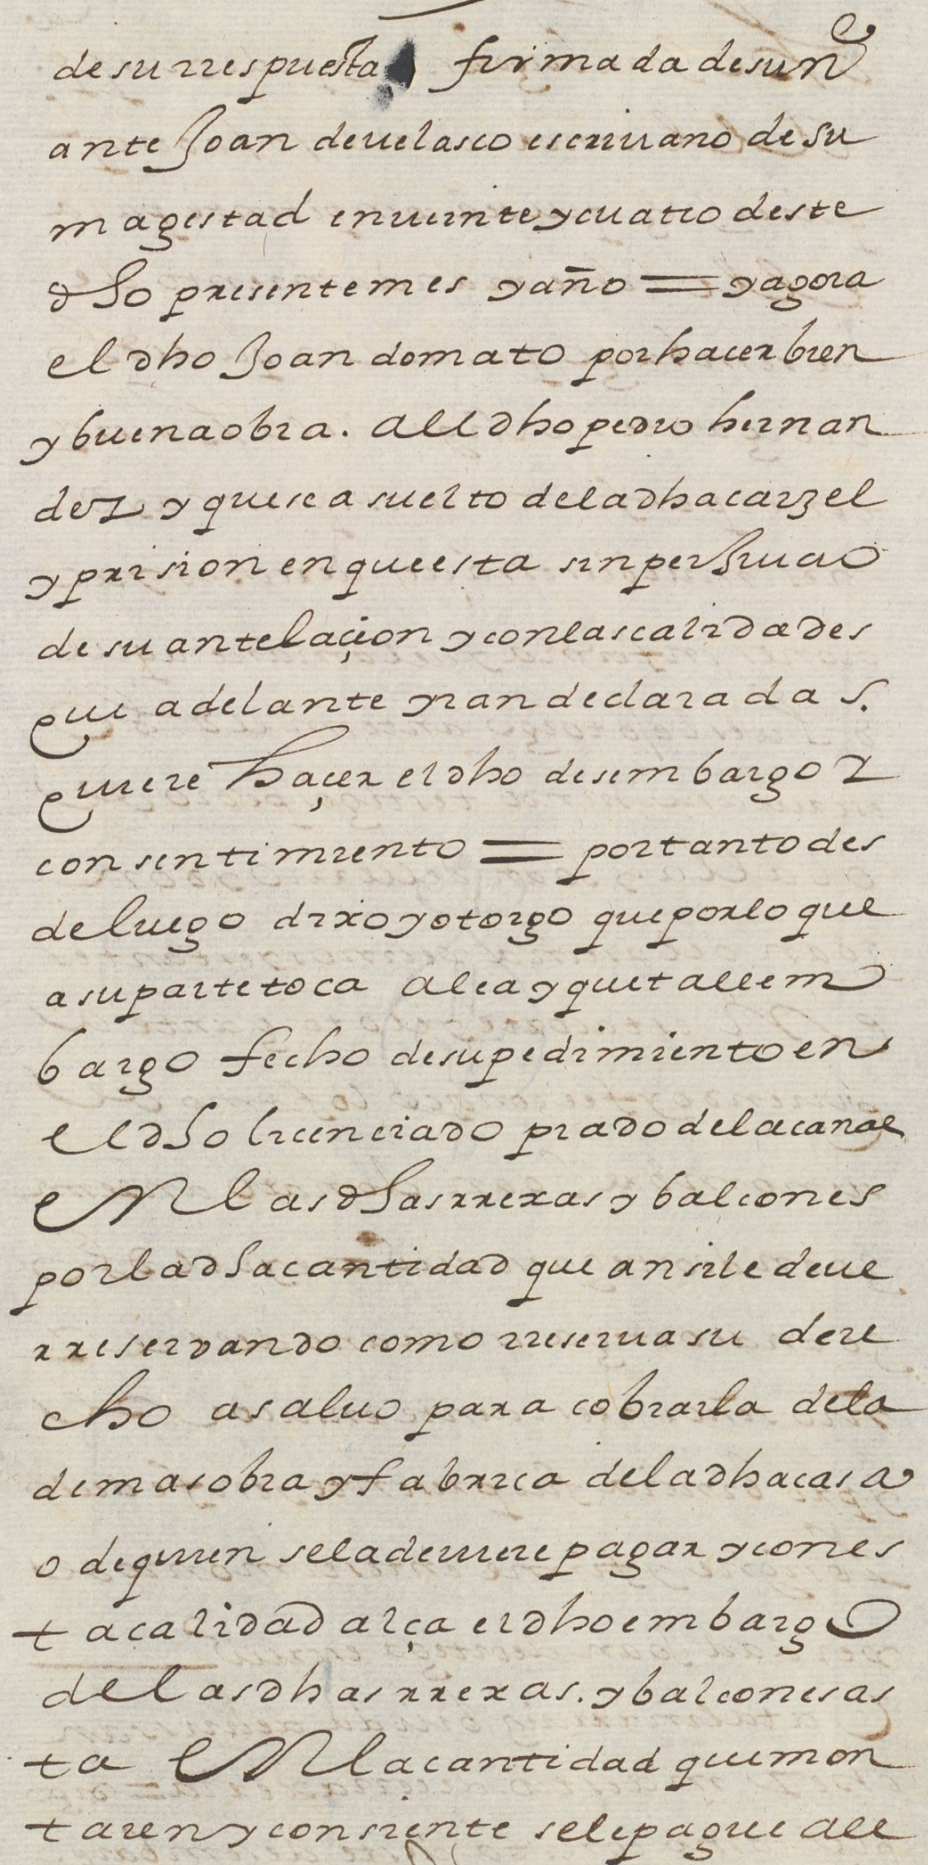 de su rrespuesta firmada de su nẽ
ante Joan de uelasco escriuano de su
magestad en ueinte y cuatro deste
dho presente mes y año = y agora
el dho Joan donato por hacer bien
y buena obra. al dho pedro hernan
dez y que sea suelto de la dha carzel
y prision en que esta sin perJuicio
de su antelaçion y con las calidades
que adelante yran declaradas.
quiere haçer el dho desembargo y
consentimiento = por tanto des
de luego dixo y otorgo que por lo que
a su parte toca alça y quita el em
bargo fecho de su pedimiento en
el dho licenciado prado de la canal
En las dhas rrexas y balcones
por la dha cantidad que ansi le deue
rreservando como rreserua su dere
cho a saluo para cobrarla de la
demas obra y fabrica de la dha casa
o de quien se la deuiere pagar y con es
ta calidad alça el dho embargo
de las dhas rrexas. y balcones as
ta En la cantidad que mon
taren y consiente se le pague al